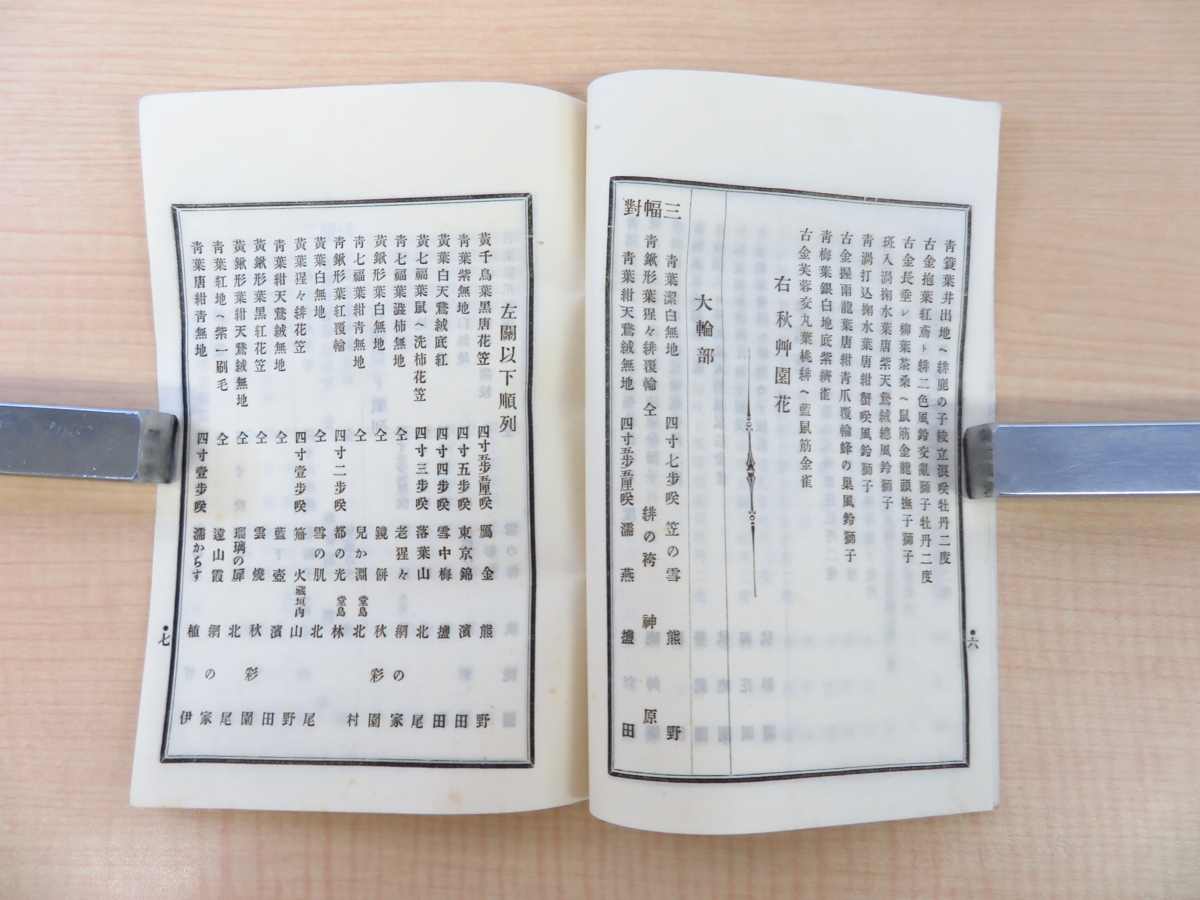 青簑葉井出地ヘ緋鹿の子綾立涙咲牡丹二度
古金抱葉紅鳶ト緋二色風鈴交亂獅子牡丹二度
古金長垂レ柳葉茶桑ヘ鼠筋金龍頭撫子獅子
斑入渦掬水葉唐紫天鵞絨總風鈴獅子
靑渦打込掬水葉唐紺蟹咲風鈴獅子
古金握雨龍葉唐紺靑爪覆輪蜂の巢風鈴獅子
靑梅葉銀白地底紫絣雀
古金芙蓉交丸葉桃緋ヘ藍鼠筋金雀
右 秋艸園花
大輪部
三幅對
靑葉潔白無地 四寸七步咲 笠の雪 熊野
靑鍬形葉猩々緋覆輪 仝 緋の袴 神原
靑葉紺天鵞絨無地 四寸五步五厘咲 濡燕 鹽田
●六
左關以下順列
黃千鳥葉黑唐花笠 四寸五步五厘咲 鴈金 熊野
靑葉紫無地 四寸五步咲 東京錦 濱田
黃葉白天鵞絨底紅 四寸四步咲 雪中梅 鹽田
黃七福葉鼠ヘ洗柿花笠 四寸三步咲 落葉山 北尾
靑七福葉澁柿無地 仝 老猩々 網の家
黃鍬形葉白無地 仝 鏡餅 秋彩園
靑七福葉紺靑無地 仝 兒か淵 堂島 北村
靑鍬形葉紅覆輪 四寸二步咲 都の光 堂島 林
黃葉白無地 仝 雪の肌 北尾
黃葉猩々緋花笠 四寸壹步咲 篝火 蔵垣內 山野
靑葉紺天鵞絨無地 仝 藍壺 濱田
黃鍬形葉黑紅花笠 仝 雲燒 秋彩園
黃鍬形葉紺天鵞絨無地 仝 瑠璃の扉 北尾
靑葉紅地ヘ紫一刷毛 仝 遠山霞 網の家
靑葉唐紺靑無地 四寸壹步咲 濡からす 植伊
●七